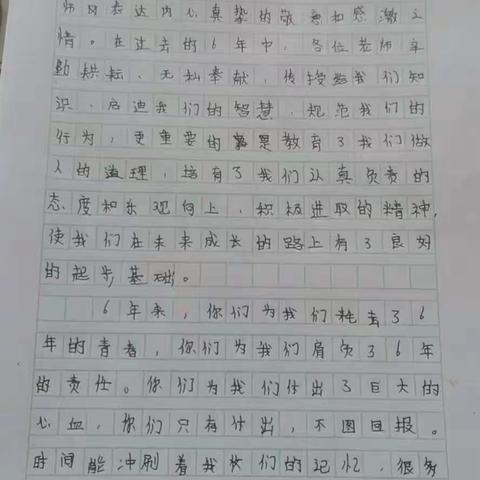 师们表达内心真挚的敬意和感激之
情。在过去的6年中，各位老师辛
勤耕耘、无私奉献，传授给我们知
识、启迪我们的智慧，规范我们的
行为，更重要的是教育了我们做
人的道理，培育了我们认真负责的
态度和乐观向上，积极进取的精神，
使我们在未来成长的路上有了良好
的起步基础。
6年来，你们为我们耗去了6
年的青春，你们为我们肩负了6年
的责任。你们为我们付出了巨大的
心血，你们只有付出，不图回报。
时间能冲刷着我们的记忆，很多